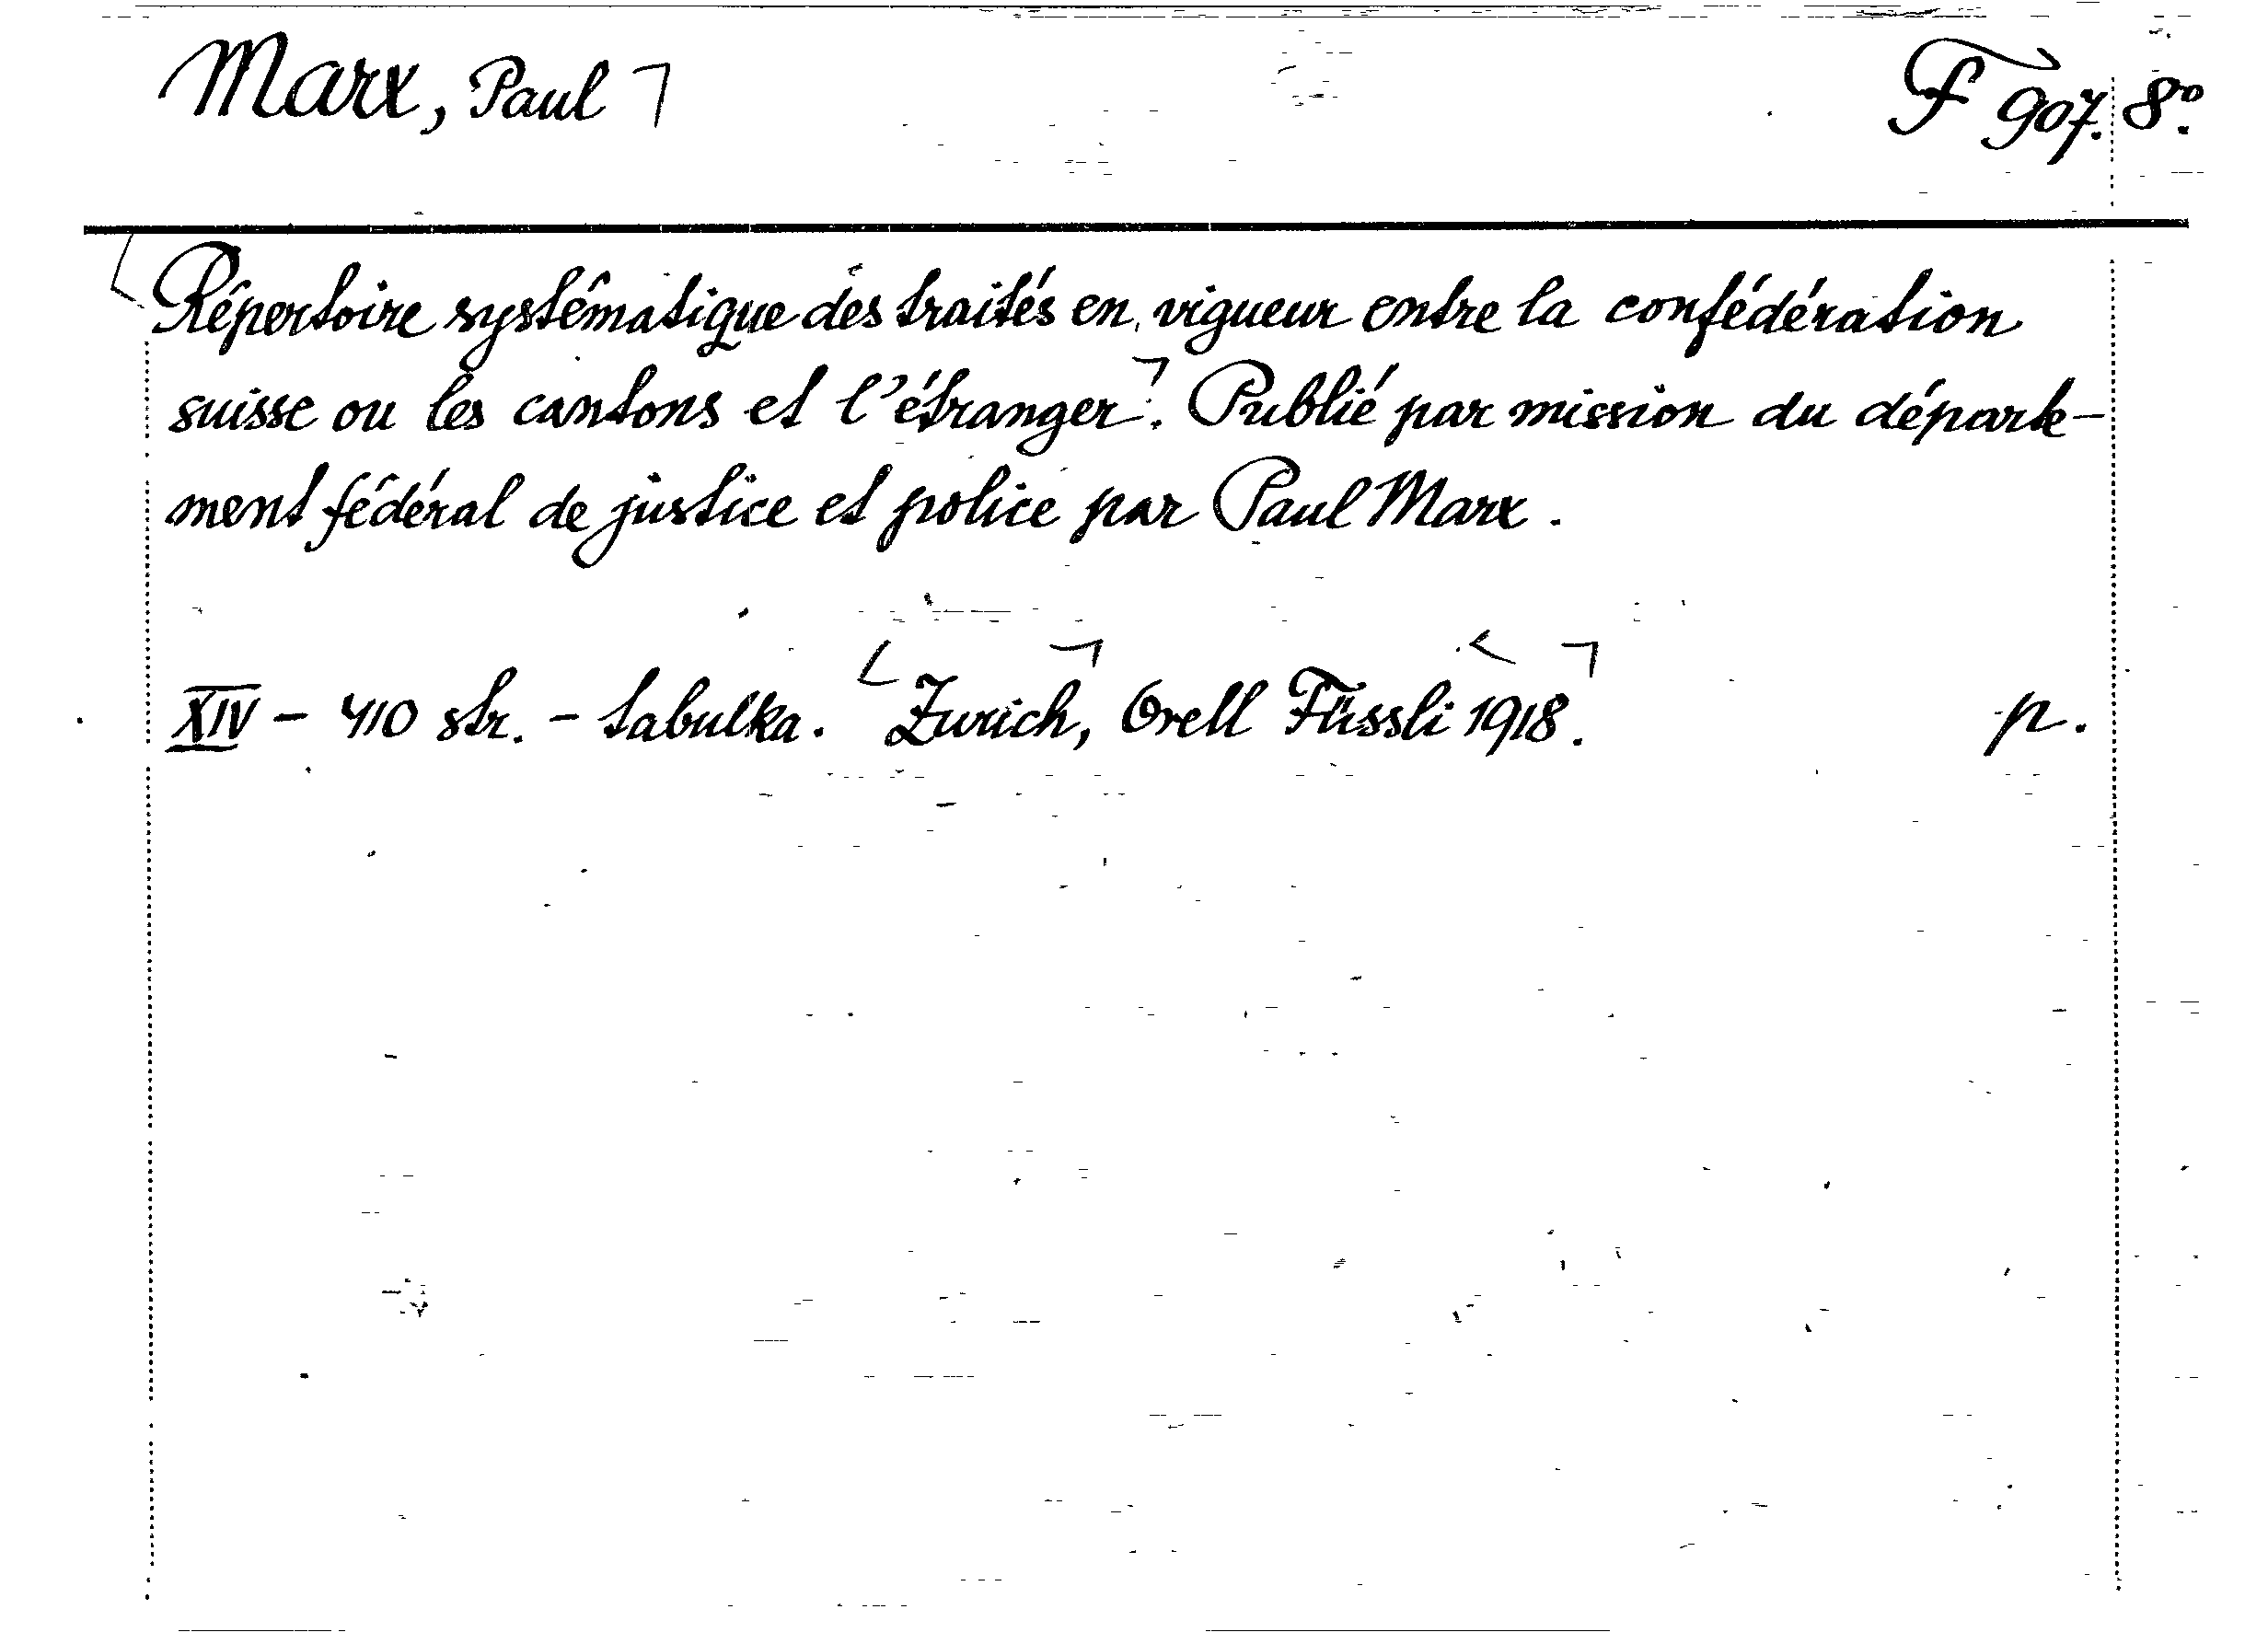 Marx, Paul
F 907. 8º.
Répertoire systématique des traités en vigueur entre la confédération
suisse ou les cantons et l'étranger. Publié par mission du départe-
ment fédéral de justice et police par Paul Marx.
XIV - 410 str. - tabulka. Zurich, Orell Füssli 1918.
p.